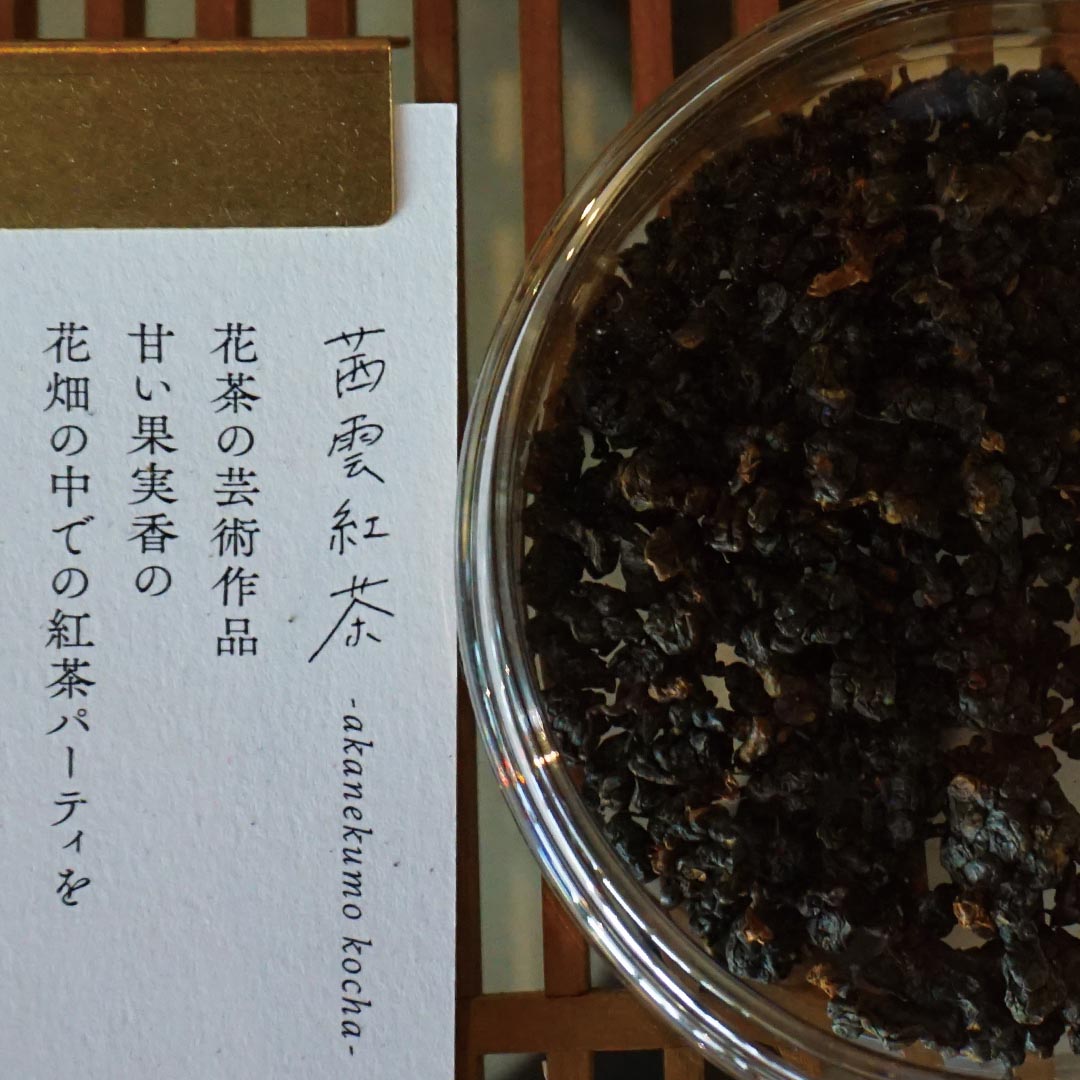 茜雲紅茶
-akanekumo kocha-
花茶の芸術作品
甘い果実香の
花畑の中での紅茶パーティを